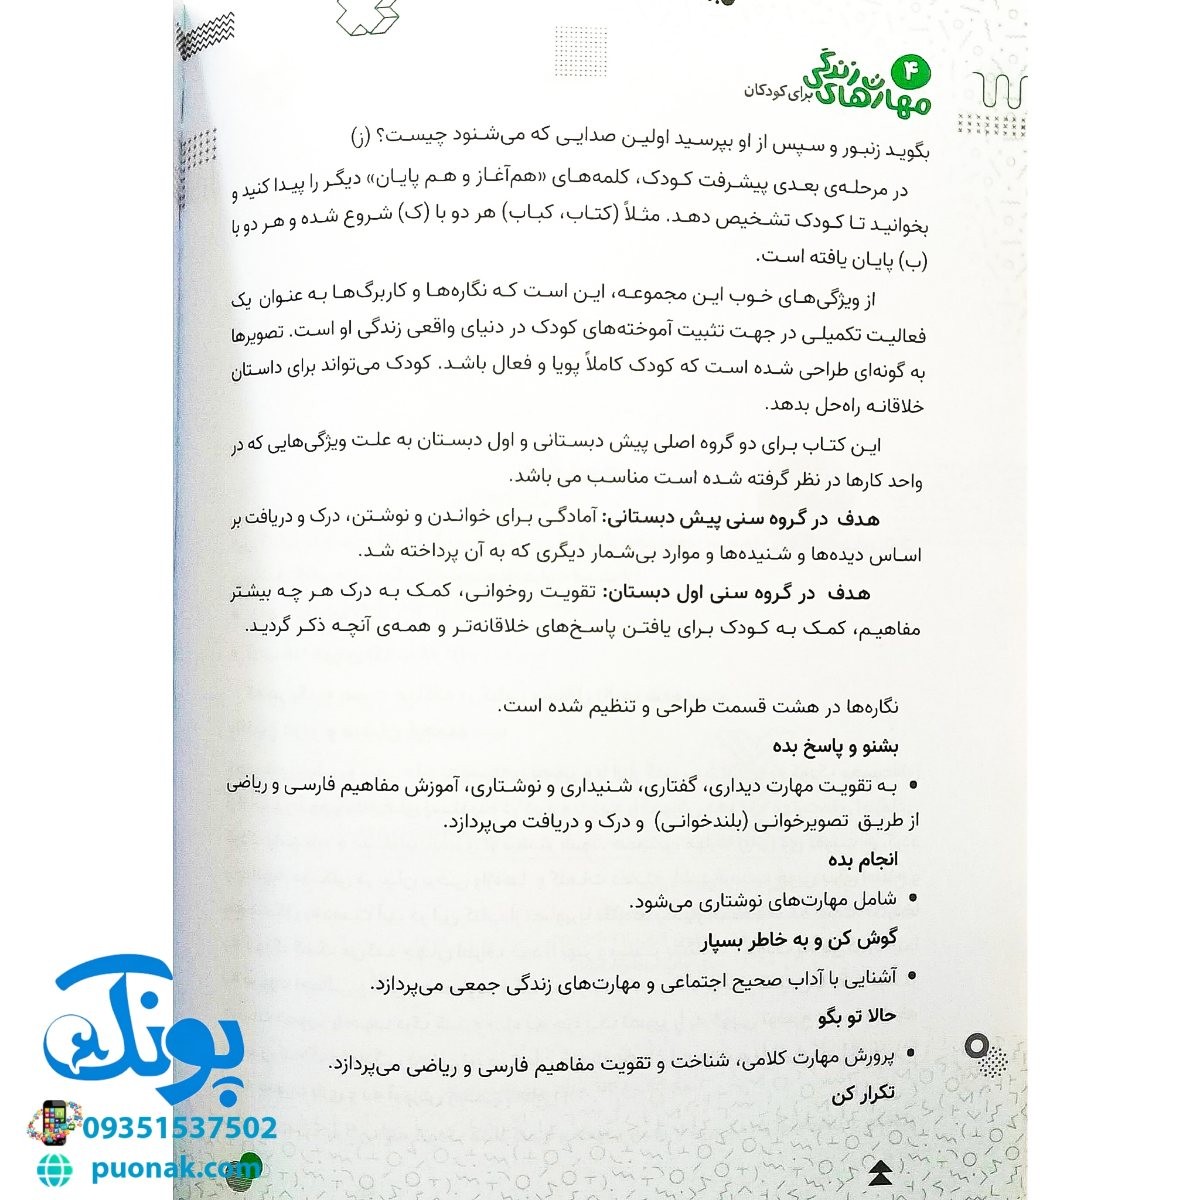 ۴
مهارت‌های زندگی
برای کودکان
بگوید زنبور و سپس از او بپرسید اولین صدایی که می‌شنود چیست؟ (ز)
در مرحله‌ی بعدی پیشرفت کودک، کلمه‌های «هم‌آغاز و هم پایان» دیگر را پیدا کنید و
بخوانید تا کودک تشخیص دهد. مثلاً (کتاب، کباب) هر دو با (ک) شروع شده و هر دو با
(ب) پایان یافته است.
از ویژگی‌های خوب این مجموعه، این است که نگاره‌ها و کاربرگ‌ها به عنوان یک
فعالیت تکمیلی در جهت تثبیت آموخته‌های کودک در دنیای واقعی زندگی او است. تصویرها
به گونه‌ای طراحی شده است که کودک کاملاً پویا و فعال باشد. کودک می‌تواند برای داستان
خلاقانه راه‌حل بدهد.
این کتاب برای دو گروه اصلی پیش دبستانی و اول دبستان به علت ویژگی‌هایی که در
واحد کارها در نظر گرفته شده است مناسب می باشد.
هدف در گروه سنی پیش دبستانی: آمادگی برای خواندن و نوشتن، درک و دریافت بر
اساس دیده‌ها و شنیده‌ها و موارد بی‌شمار دیگری که به آن پرداخته شد.
هدف در گروه سنی اول دبستان: تقویت روخوانی، کمک به درک هر چه بیشتر
مفاهیم، کمک به کودک برای یافتن پاسخ‌های خلاقانه‌تر و همه‌ی آنچه ذکر گردید.
نگاره‌ها در هشت قسمت طراحی و تنظیم شده است.
بشنو و پاسخ بده
• به تقویت مهارت دیداری، گفتاری، شنیداری و نوشتاری، آموزش مفاهیم فارسی و ریاضی
از طریق تصویرخوانی (بلندخوانی) و درک و دریافت می‌پردازد.
انجام بده
• شامل مهارت‌های نوشتاری می‌شود.
گوش کن و به خاطر بسپار
• آشنایی با آداب صحیح اجتماعی و مهارت‌های زندگی جمعی می‌پردازد.
حالا تو بگو
• پرورش مهارت کلامی، شناخت و تقویت مفاهیم فارسی و ریاضی می‌پردازد.
تکرار کن
پونک
09351537502
puonak.com